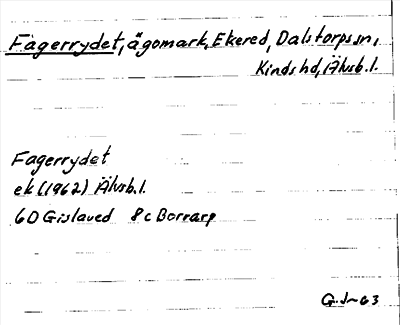 Fagerrydet, ägomark, Ekered, Dalstorps sn,
Kinds hd, Älvsb. l.
Fagerrydet
ek (1962) Älvsb. l.
6D Gislaved 8c Borrarp
G.J-63